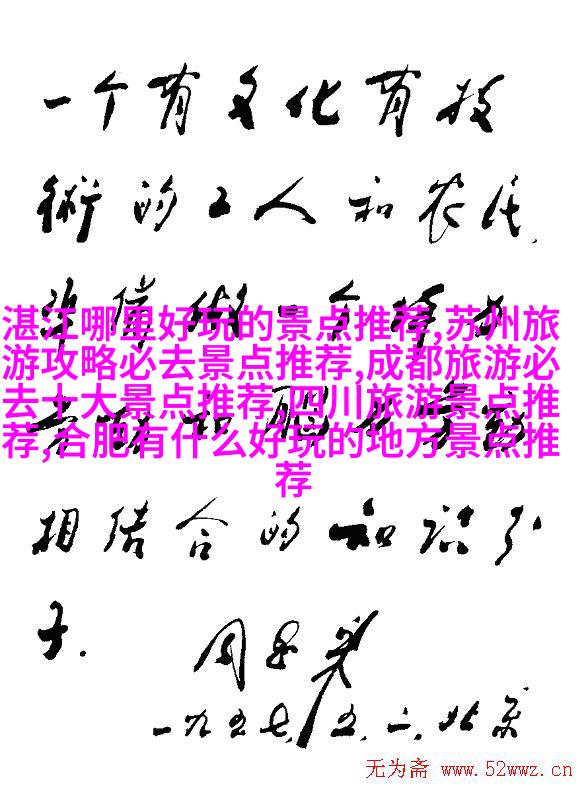 一个有文化有技
術的工人和农民
湛江哪里好玩的景点推荐,苏州旅
游攻略必去景点推荐,成都旅游必
去十大景点推荐,四川旅游景点推
荐,合肥有什么好玩的地方景点推
荐
相结合的知识分
子.
周恩来
一九五七.五.一.北京
无为斋 www.52wwz.cn